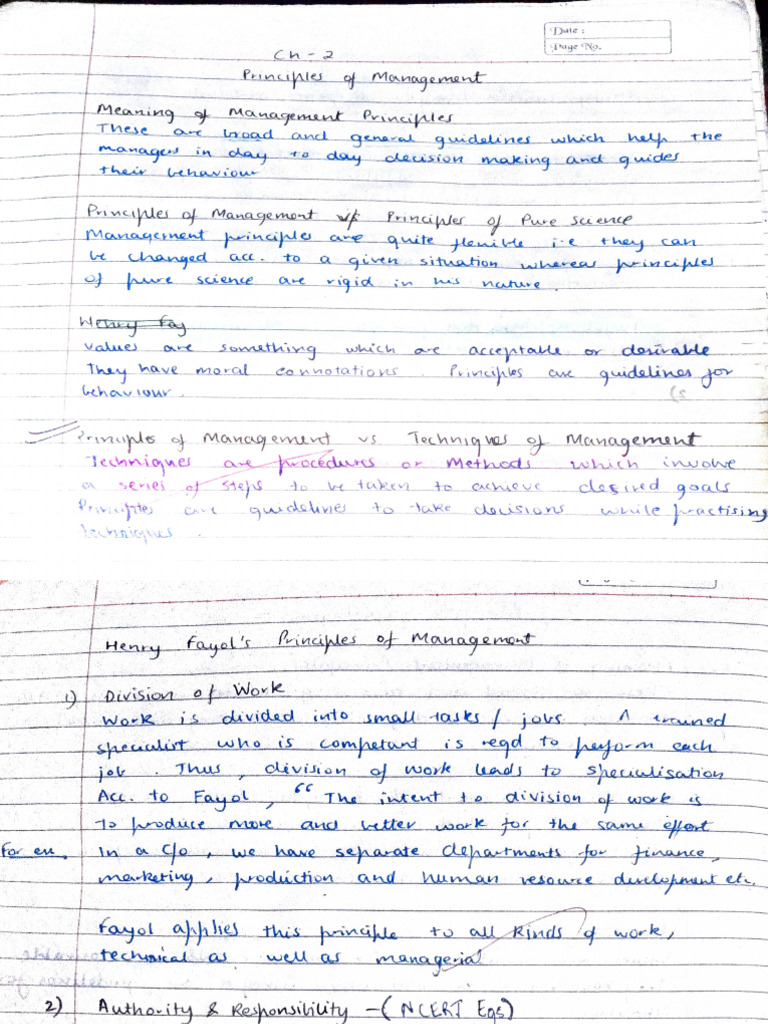 Date :
Page No.
Ch - 2
Principles of Management
Meaning of Management Principles
These are broad and general guidelines which help the
managers in day to day decision making and guides
their behaviour
Principles of Management v/s Principles of Pure Science
Management principles are quite flexible i.e they can
be changed acc. to a given situation whereas principles
of pure science are rigid in his nature.
Henry Fay
values are something which are acceptable or desirable
They have moral connotations. Principles are guidelines for
behaviour.
Principles of Management vs Techniques of Management
Techniques are procedures or Methods which involve
a series of steps to be taken to achieve desired goals
Principles are guidelines to take decisions while practising
techniques.
Henry Fayol's Principles of Management
1) Division of Work
Work is divided into small tasks / jobs. A trained
specialist who is competant is reqd to perform each
job. Thus, division of work leads to specialisation
Acc. to Fayol, "The intent to division of work is
to produce more and better work for the same effort
For ex. In a c/o, we have separate departments for finance,
marketing, production and human resource development etc.
Fayol applies this principle to all kinds of work,
technical as well as managerial
2) Authority & Responsibility - (NCERT Egs)